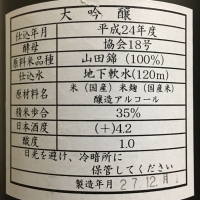 大吟醸
仕込年月 平成24年度
酵母 協会18号
原料米品種 山田錦(100%)
仕込水 地下軟水(120m)
原材料名 米(国産)米麹(国産米)
醸造アルコール
精米歩合 35%
日本酒度 (+)4.2
酸度 1.0
日光を避け、冷暗所に
保管してください
製造年月 27.12月